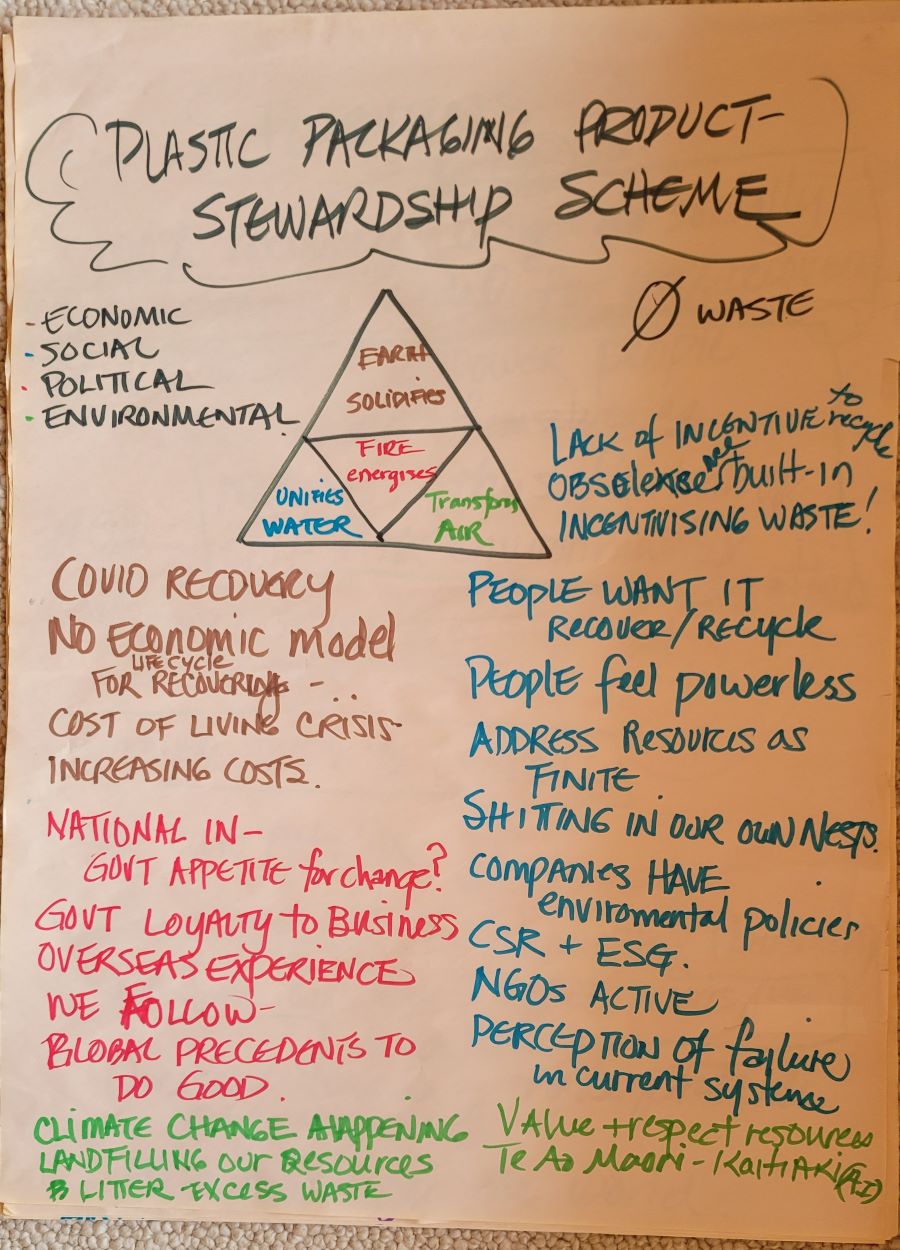 PLASTIC PACKAGING PRODUCT-
STEWARDSHIP SCHEME
- ECONOMIC
- SOCIAL
- POLITICAL
- ENVIRONMENTAL
Ø WASTE
EARTH
SOLIDIFIES
FIRE
energises
UNIFIES
WATER
Transform
AIR
LACK of INCENTIVE to recycle
built-in
INCENTIVISING WASTE!
COVID RECOVERY
NO ECONOMIC model
LIFECYCLE
FOR RECOVERING - ..
COST OF LIVING CRISIS
INCREASING COSTS.
NATIONAL IN-
GOVT APPETITE for change?
GOVT LOYALTY to BUSINESS
OVERSEAS EXPERIENCE
WE FOLLOW-
GLOBAL PRECEDENTS TO
DO GOOD.
PEOPLE WANT IT
RECOVER/RECYCLE
PEOPLE feel powerless
ADDRESS RESOURCES as
FINITE.
SHITTING IN OUR OWN NESTS.
COMPANIES HAVE
enviromental policies
CSR + ESG.
NGOs ACTIVE
PERCEPTION OF failure
in current systems
CLIMATE CHANGE HAPPENING
LANDFILLING OUR RESOURCES
LITTER - EXCESS WASTE
Value + respect resources
Te Ao Maori - Kaitiaki